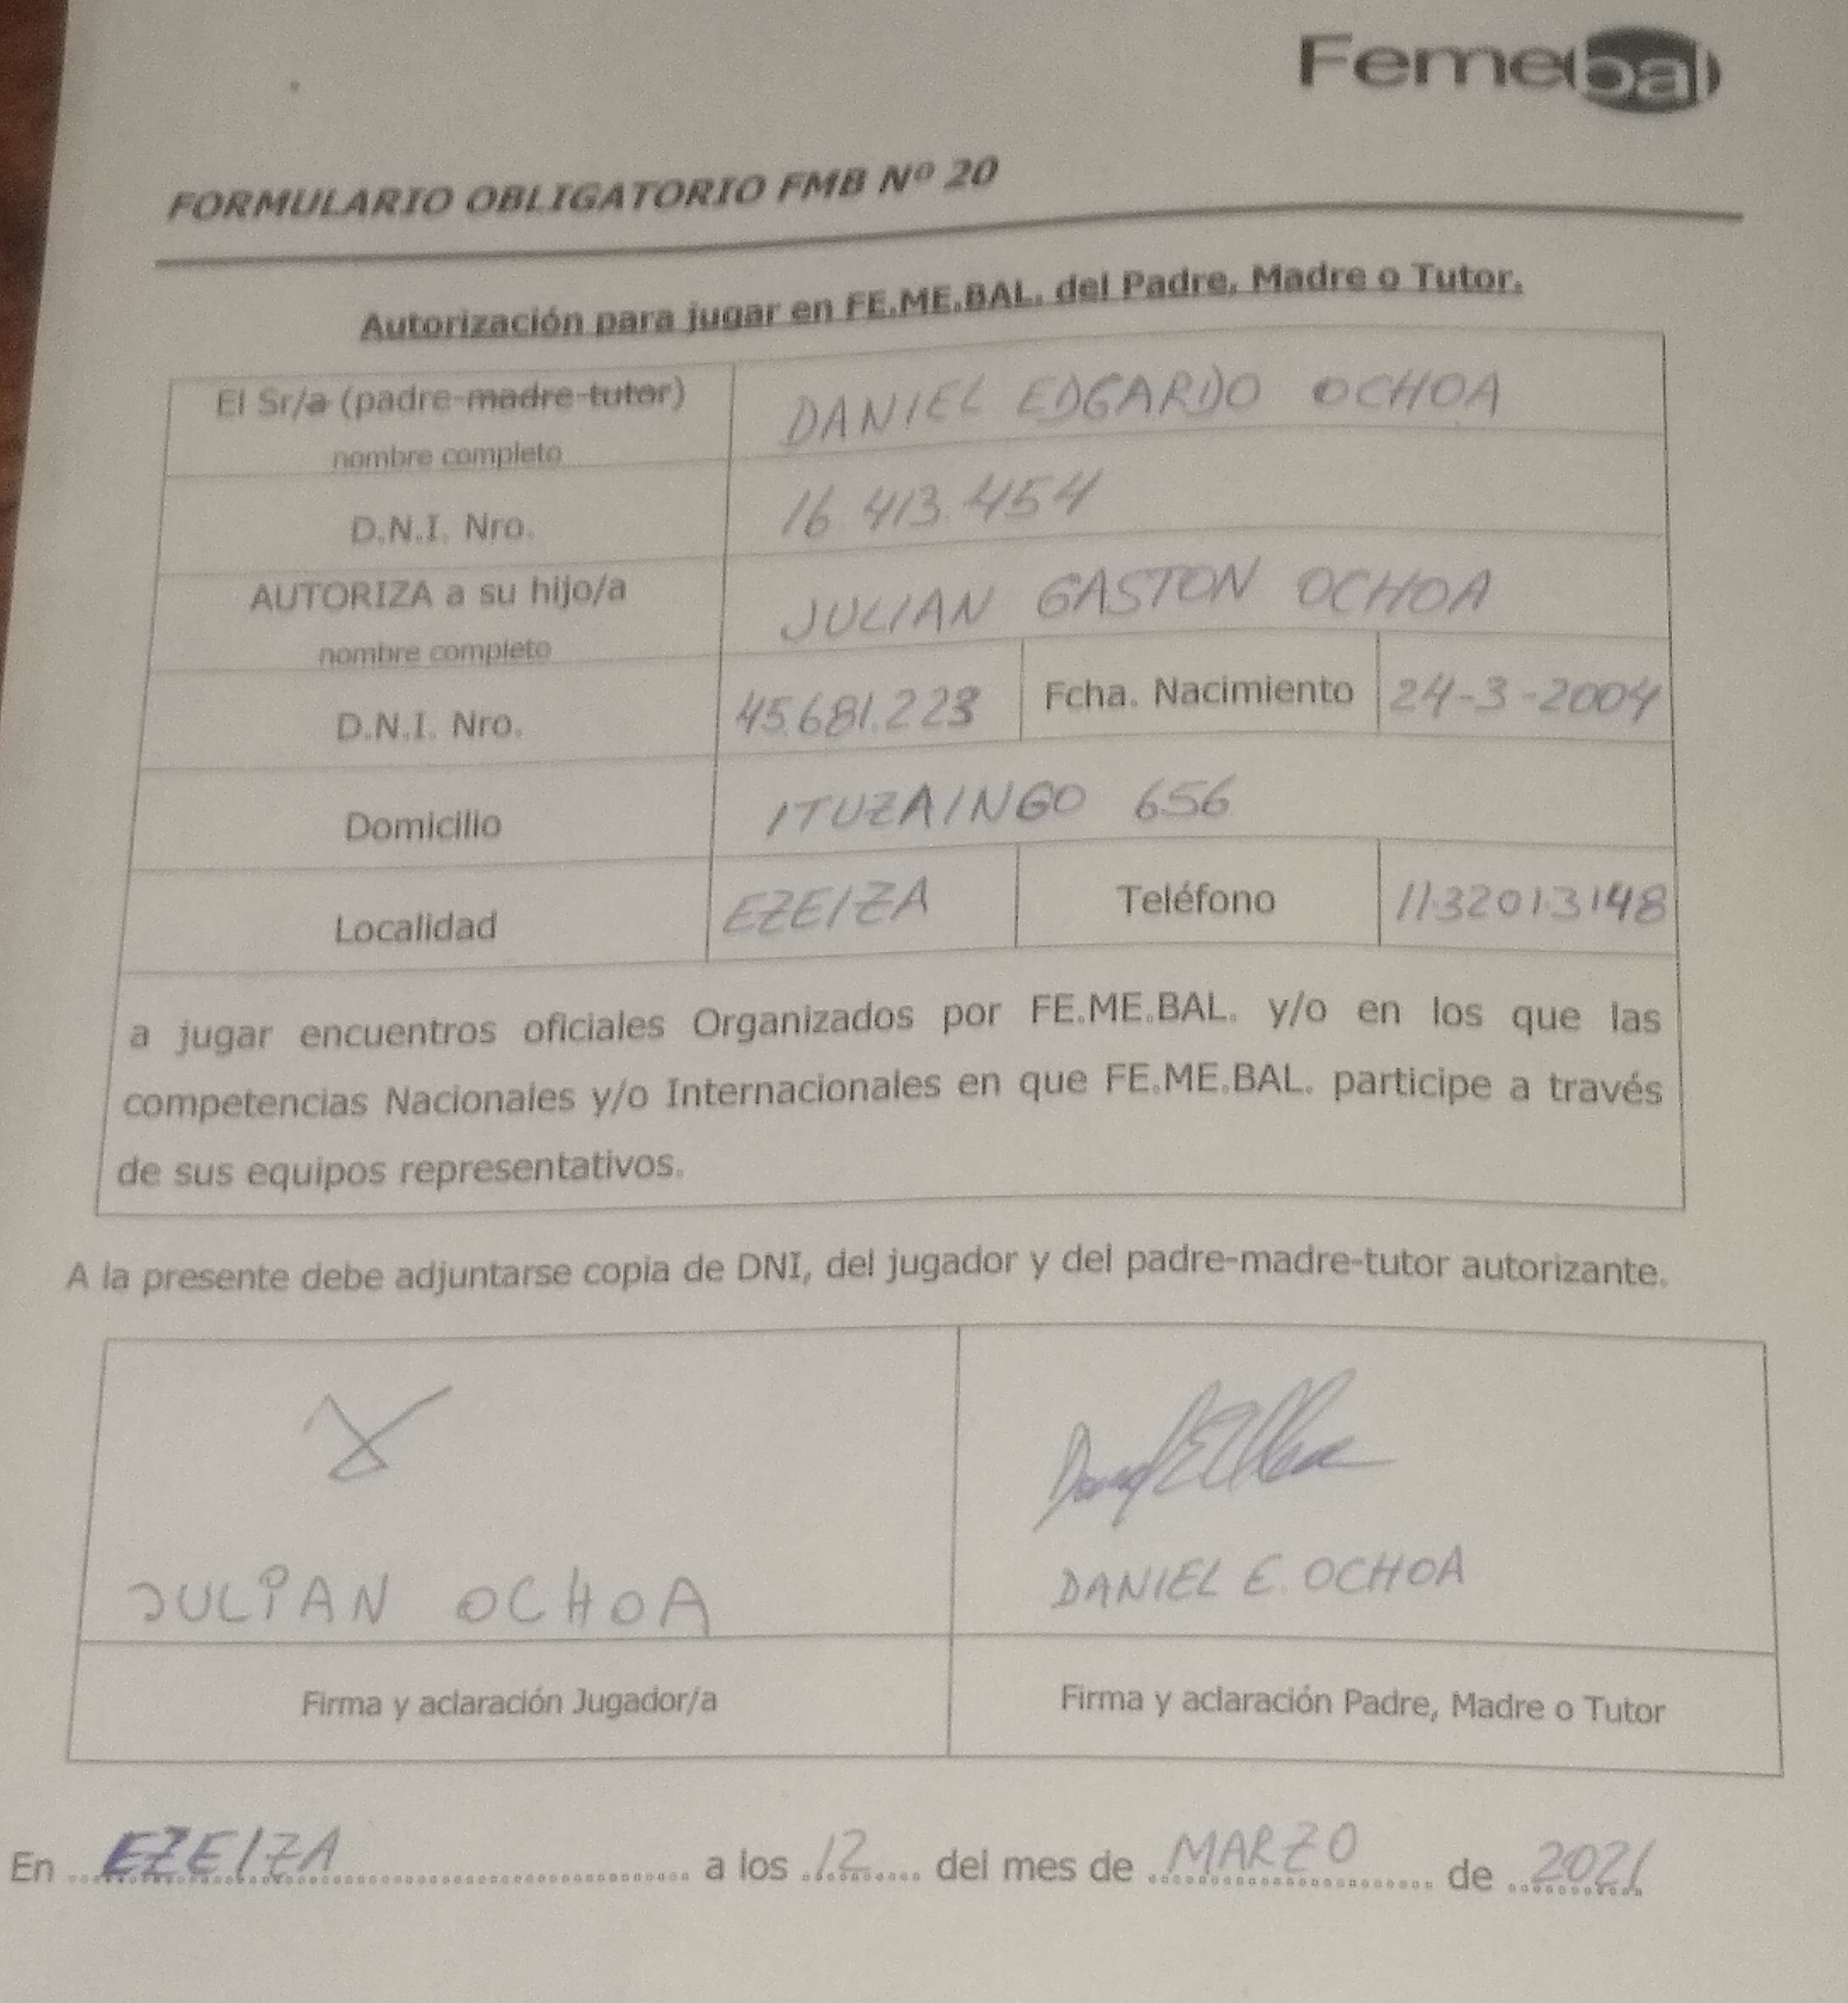 Femebal
FORMULARIO OBLIGATORIO FMB Nº 20
Autorización para jugar en FE.ME.BAL. del Padre, Madre o Tutor.
El Sr/a (padre-madre-tutor)
nombre completo
DANIEL EDGARDO OCHOA
D.N.I. Nro.
16.413.454
AUTORIZA a su hijo/a
nombre completo
JULIAN GASTON OCHOA
D.N.I. Nro.
45.681.223
Fcha. Nacimiento
24-3-2004
Domicilio
ITUZAINGO 656
Localidad
EZEIZA
Teléfono
11.3201.3148
a jugar encuentros oficiales Organizados por FE.ME.BAL. y/o en los que las
competencias Nacionales y/o Internacionales en que FE.ME.BAL. participe a través
de sus equipos representativos.
A la presente debe adjuntarse copia de DNI, del jugador y del padre-madre-tutor autorizante.
JULIAN OCHOA
DANIEL E. OCHOA
Firma y aclaración Jugador/a
Firma y aclaración Padre, Madre o Tutor
En EZEIZA a los 12 del mes de MARZO de 2021